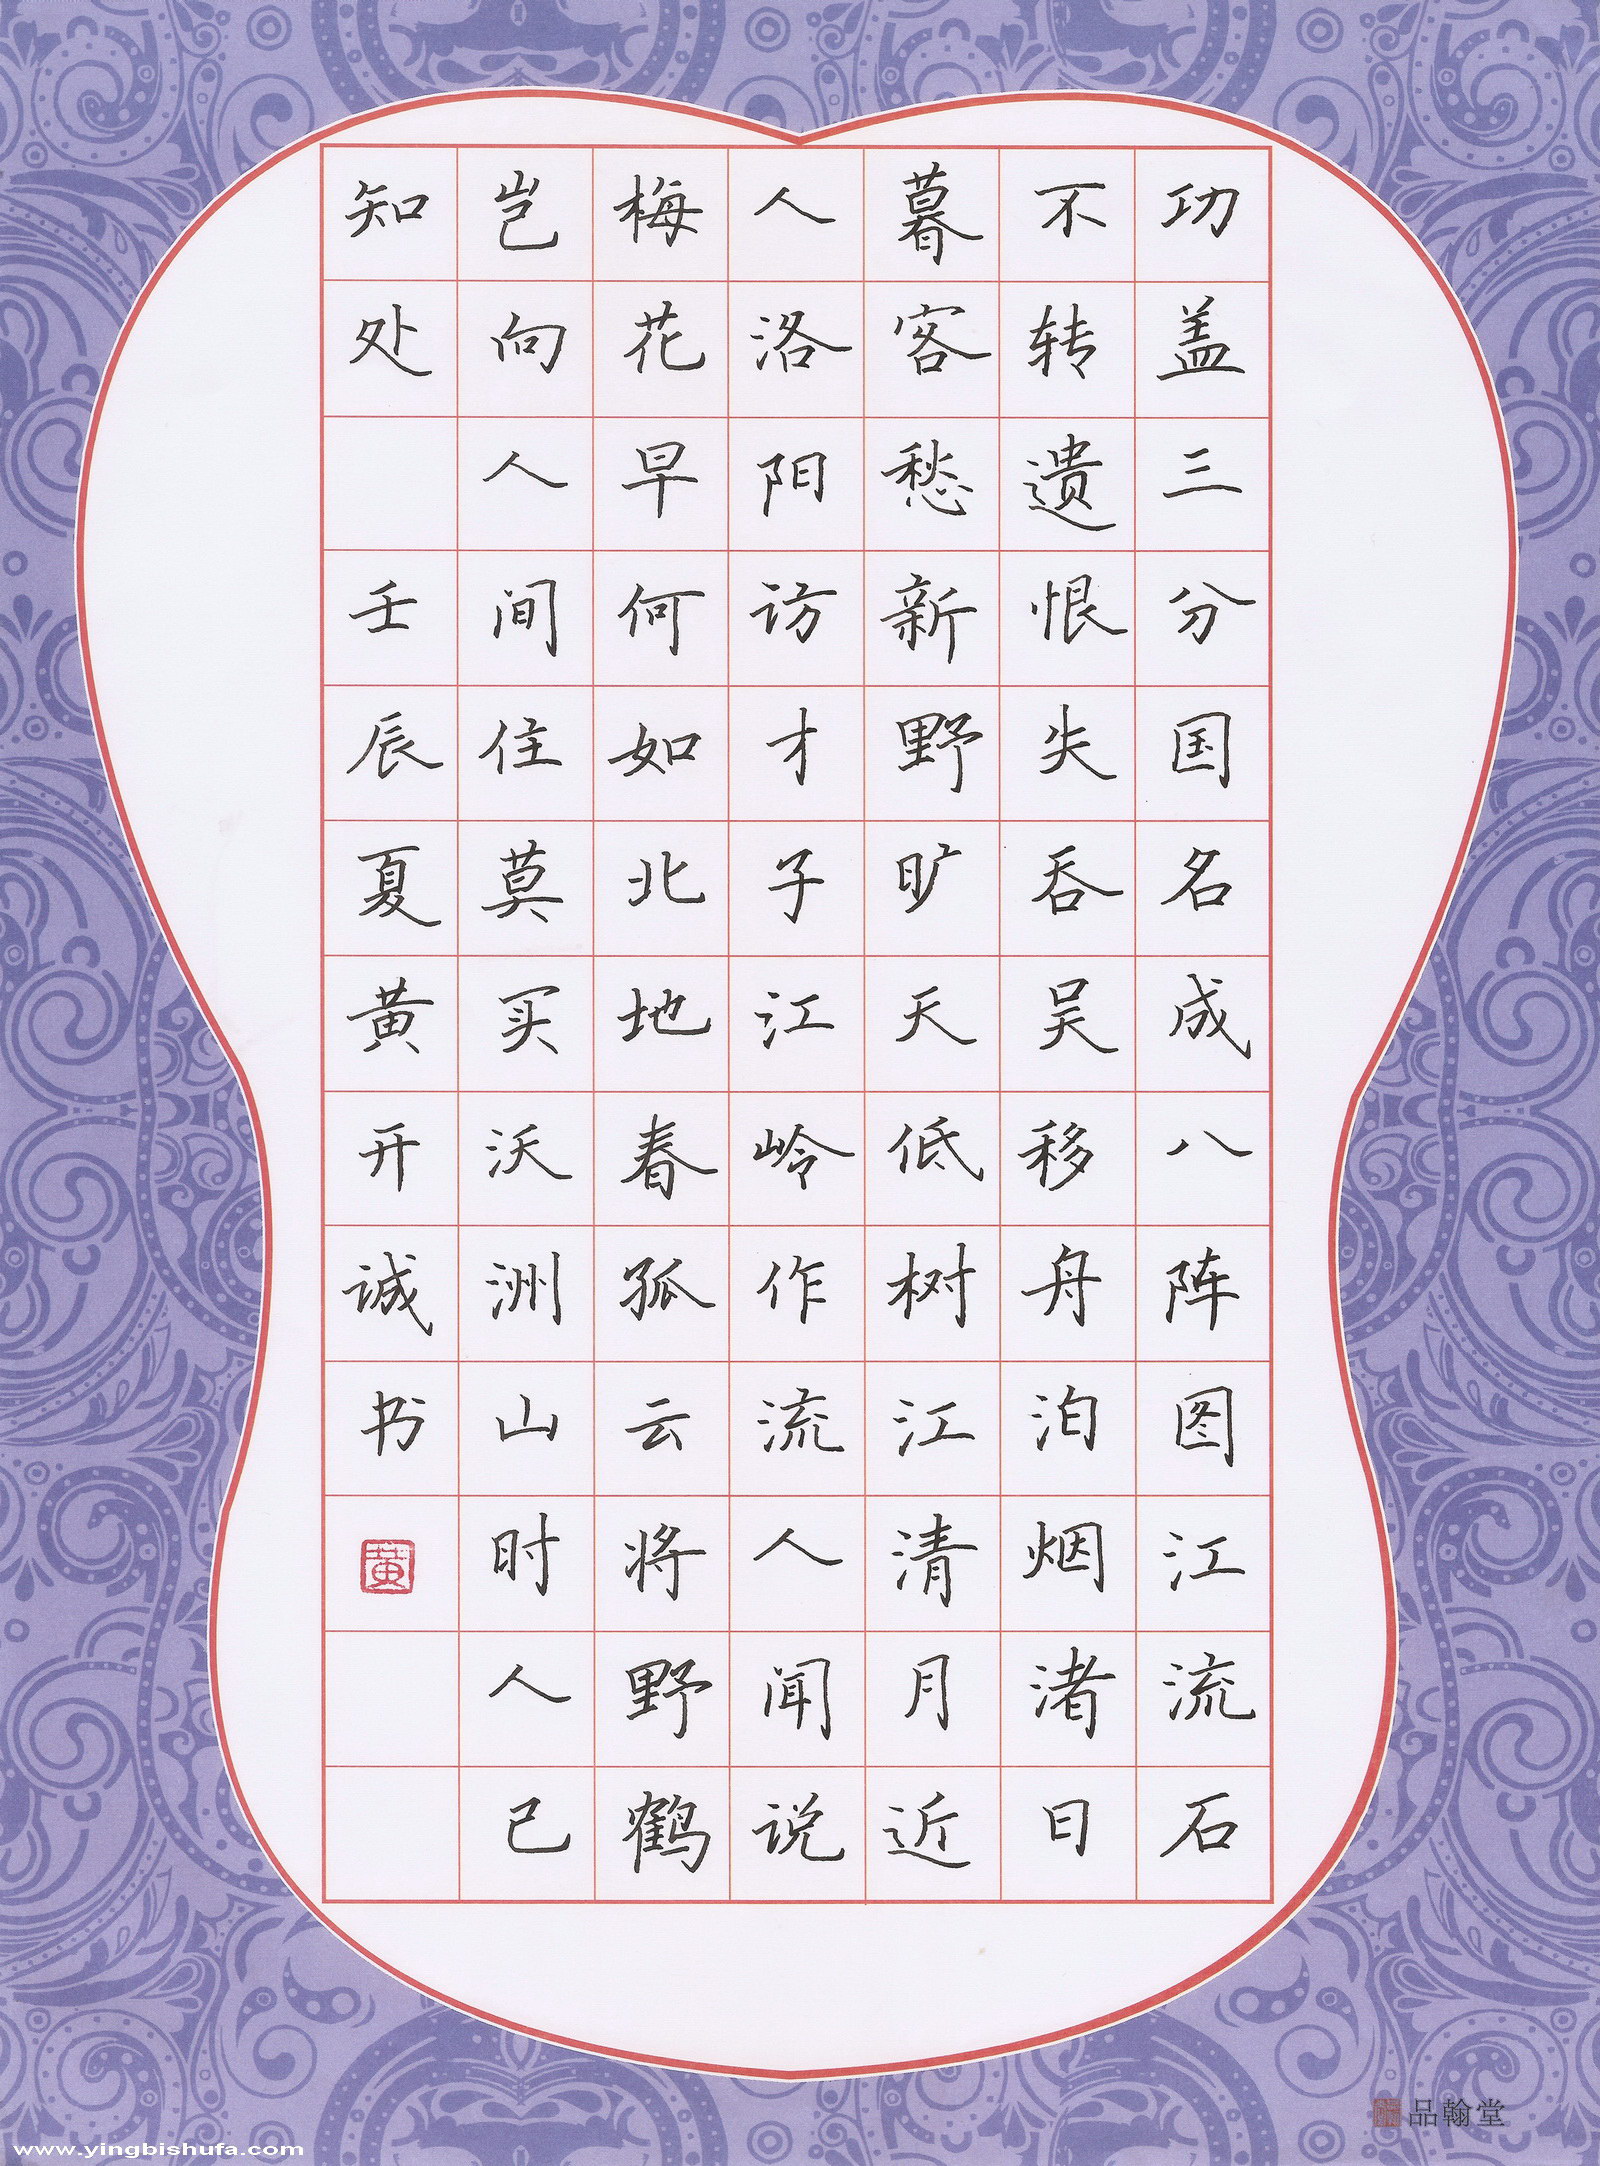 功盖三分国名成八阵图江流石
不转遗恨失吞吴移舟泊烟渚日
暮客愁新野旷天低树江清月近
人洛阳访才子江岭作流人闻说
梅花早何如北地春孤云将野鹤
岂向人间住莫买沃洲山时人已
知处 壬辰夏黄开诚书
黄
品翰堂
www.yingbishufa.com